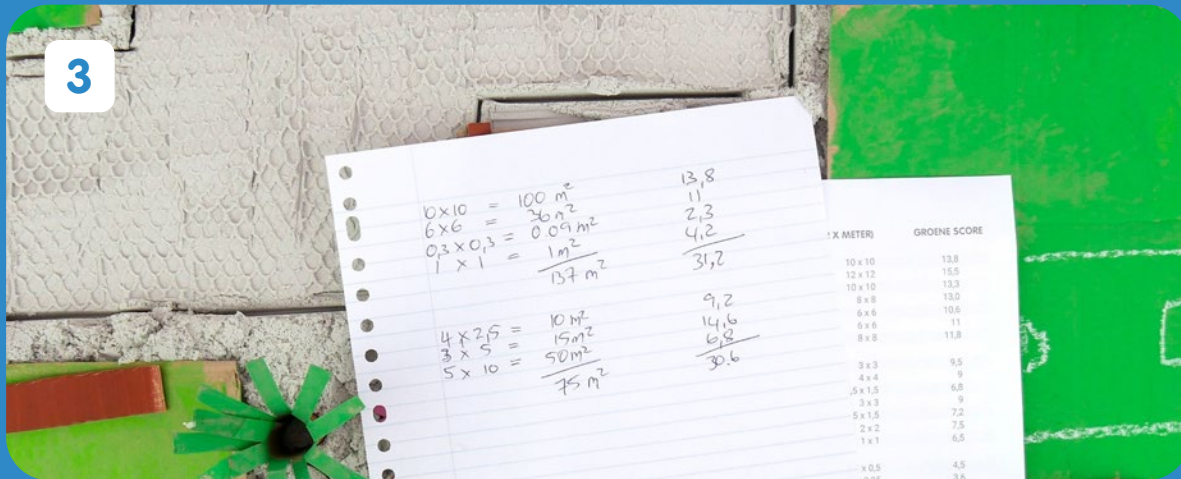 3
10x10 = 100 m² 13,8
6x6 = 36 m² 11
0,3 x 0,3 = 0.09 m² 2,3
1 x 1 = 1m² 4,2
137 m² 31,2
4 x 2,5 = 10 m² 9,2
3 x 5 = 15m² 14,6
5 x 10 = 50m² 6,8
75 m² 30.6
X METER) GROENE SCORE
10 x 10 13,8
12 x 12 15,5
10 x 10 13,3
8 x 8 13,0
6 x 6 10,6
6 x 6 11
8 x 8 11,8
3 x 3 9,5
4 x 4 9
,5 x 1,5 6,8
3 x 3 9
5 x 1,5 7,2
2 x 2 7,5
1 x 1 6,5
x 0,5 4,5
3,6